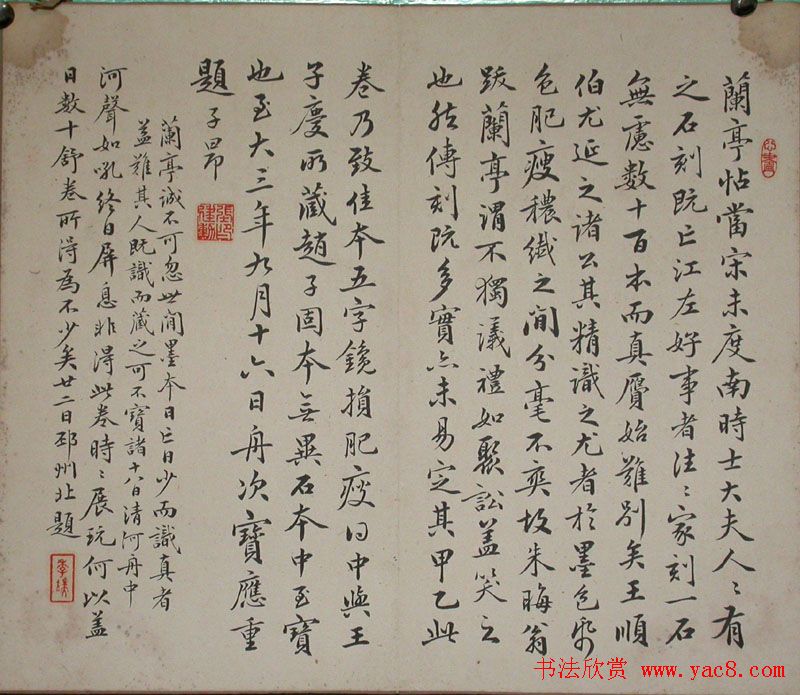 蘭亭帖當宋未度南時士大夫人〻有
之石刻既亡江左好事者往〻家刻一石
無慮數十百本而真贋始難別矣王順
伯尤延之諸公其精識之尤者於墨色紙
色肥瘦穠纖之間分毫不爽故朱晦翁
跋蘭亭謂不獨議禮如聚訟蓋笑之
也然傳刻既多實亦未易定其甲乙此
卷乃致佳本五字鑱損肥瘦得中與王
子慶所藏趙子固本無異石本中至寶
也至大三年九月十六日舟次寶應重
題子昂
蘭亭誠不可忽世間墨本日亡日少而識真者
蓋難其人既識而藏之可不寶諸十八日清河舟中
河聲如吼終日屏息非得此卷時〻展玩何以盡
日數十舒卷所得為不少矣廿二日邳州北題
书法欣赏 www.yac8.com